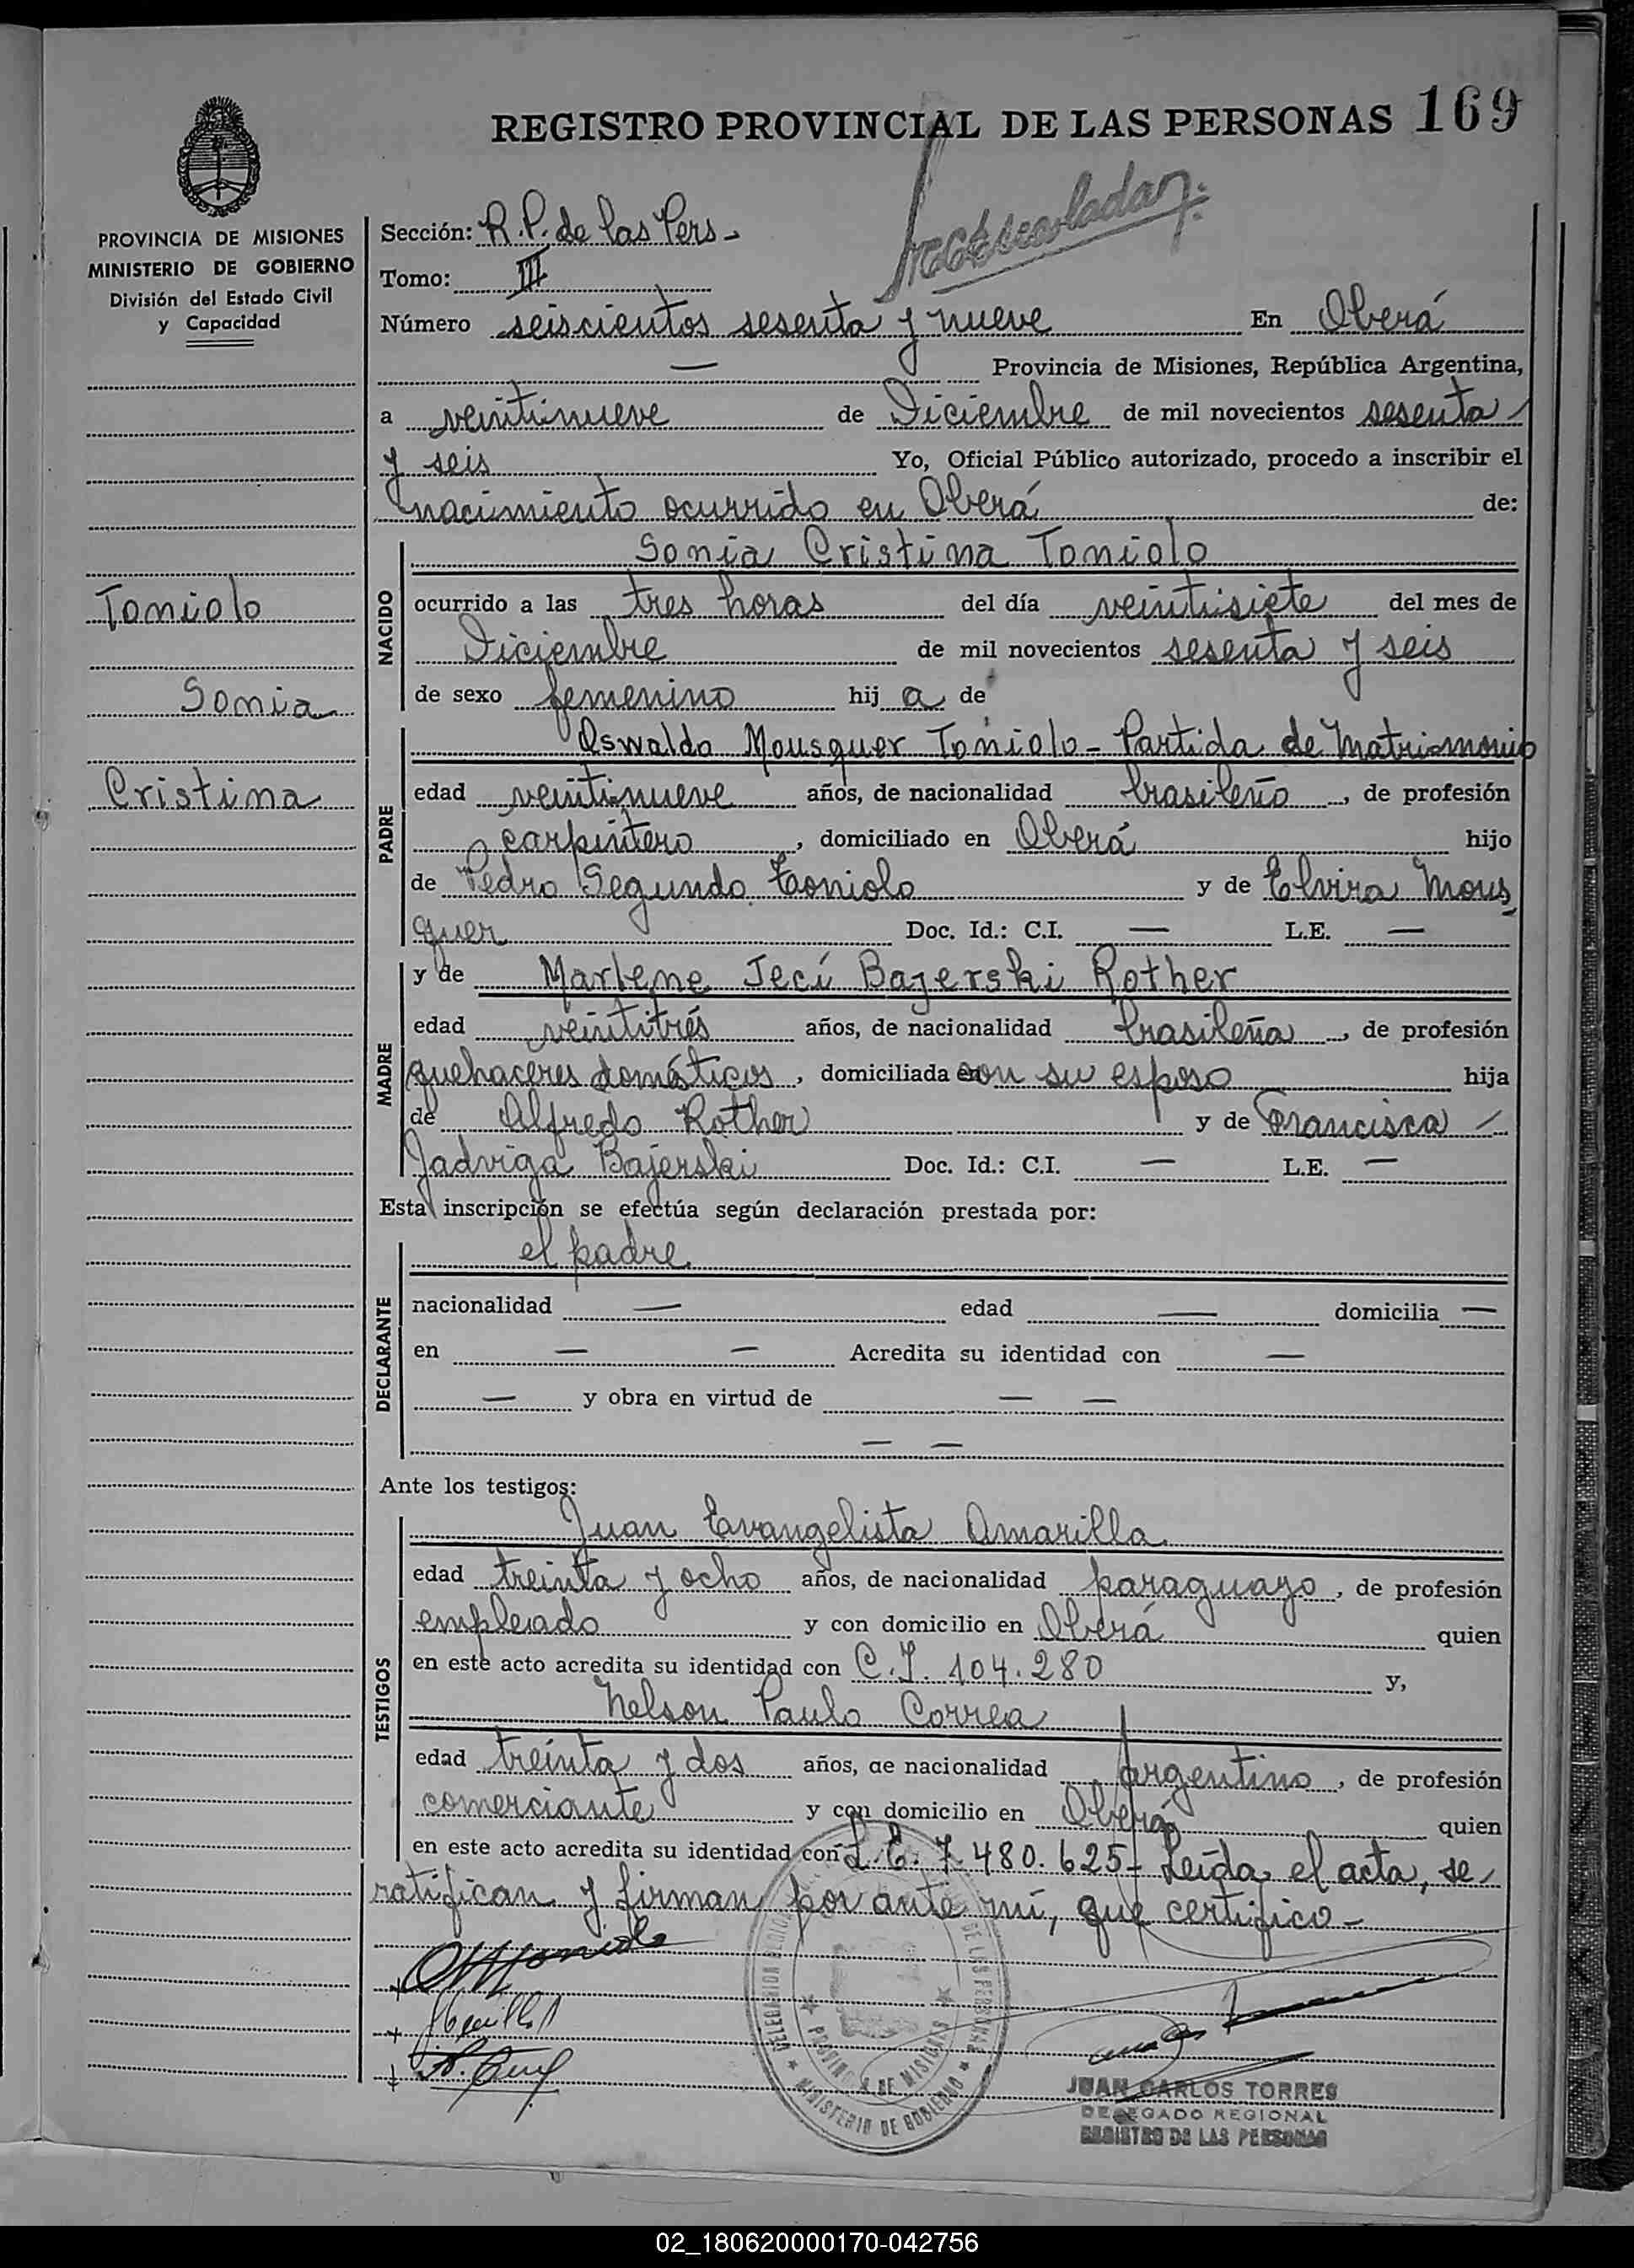 REGISTRO PROVINCIAL DE LAS PERSONAS 169
PROVINCIA DE MISIONES
MINISTERIO DE GOBIERNO
División del Estado Civil
y Capacidad
Toniolo
Sonia
Cristina
Sección: R.P. de las Pers.-
Tomo: III
Número seiscientos sesenta y nueve En Oberá
— Provincia de Misiones, República Argentina,
a veintinueve de Diciembre de mil novecientos sesenta
y seis Yo, Oficial Público autorizado, procedo a inscribir el
nacimiento ocurrido en Oberá de:
NACIDO
Sonia Cristina Toniolo
ocurrido a las tres horas del día veintisiete del mes de
Diciembre de mil novecientos sesenta y seis
de sexo femenino hij a de
PADRE
Oswaldo Mousquer Toniolo - Partida de Matrimonio
edad veintinueve años, de nacionalidad brasileño, de profesión
carpintero, domiciliado en Oberá hijo
de Pedro Segundo Toniolo y de Elvira Mous
quer Doc. Id.: C.I. — L.E. —
MADRE
y de Marlene Jecí Bajerski Rother
edad veintitrés años, de nacionalidad brasileña, de profesión
quehaceres domésticos, domiciliada con su esposo hija
de Alfredo Rother y de Francisca
Jadviga Bajerski Doc. Id.: C.I. — L.E. —
Esta inscripción se efectúa según declaración prestada por:
DECLARANTE
el padre
nacionalidad — edad — domicilia —
en — — Acredita su identidad con —
— y obra en virtud de — —
— —
Ante los testigos:
TESTIGOS
Juan Evangelista Amarilla
edad treinta y ocho años, de nacionalidad paraguayo, de profesión
empleado y con domicilio en Oberá quien
en este acto acredita su identidad con C.I. 104.280 y,
Nelson Paulo Correa
edad treinta y dos años, de nacionalidad argentino, de profesión
comerciante y con domicilio en Oberá quien
en este acto acredita su identidad con L.E. 7.480.625- Leída el acta, se
ratifican y firman por ante mí, que certifico-
OMToniolo
DELEGACION REGIONAL DE LAS PERSONAS
PROVINCIA DE MISIONES
MINISTERIO DE GOBIERNO
JUAN CARLOS TORRES
DELEGADO REGIONAL
REGISTRO DE LAS PERSONAS
02_180620000170-042756